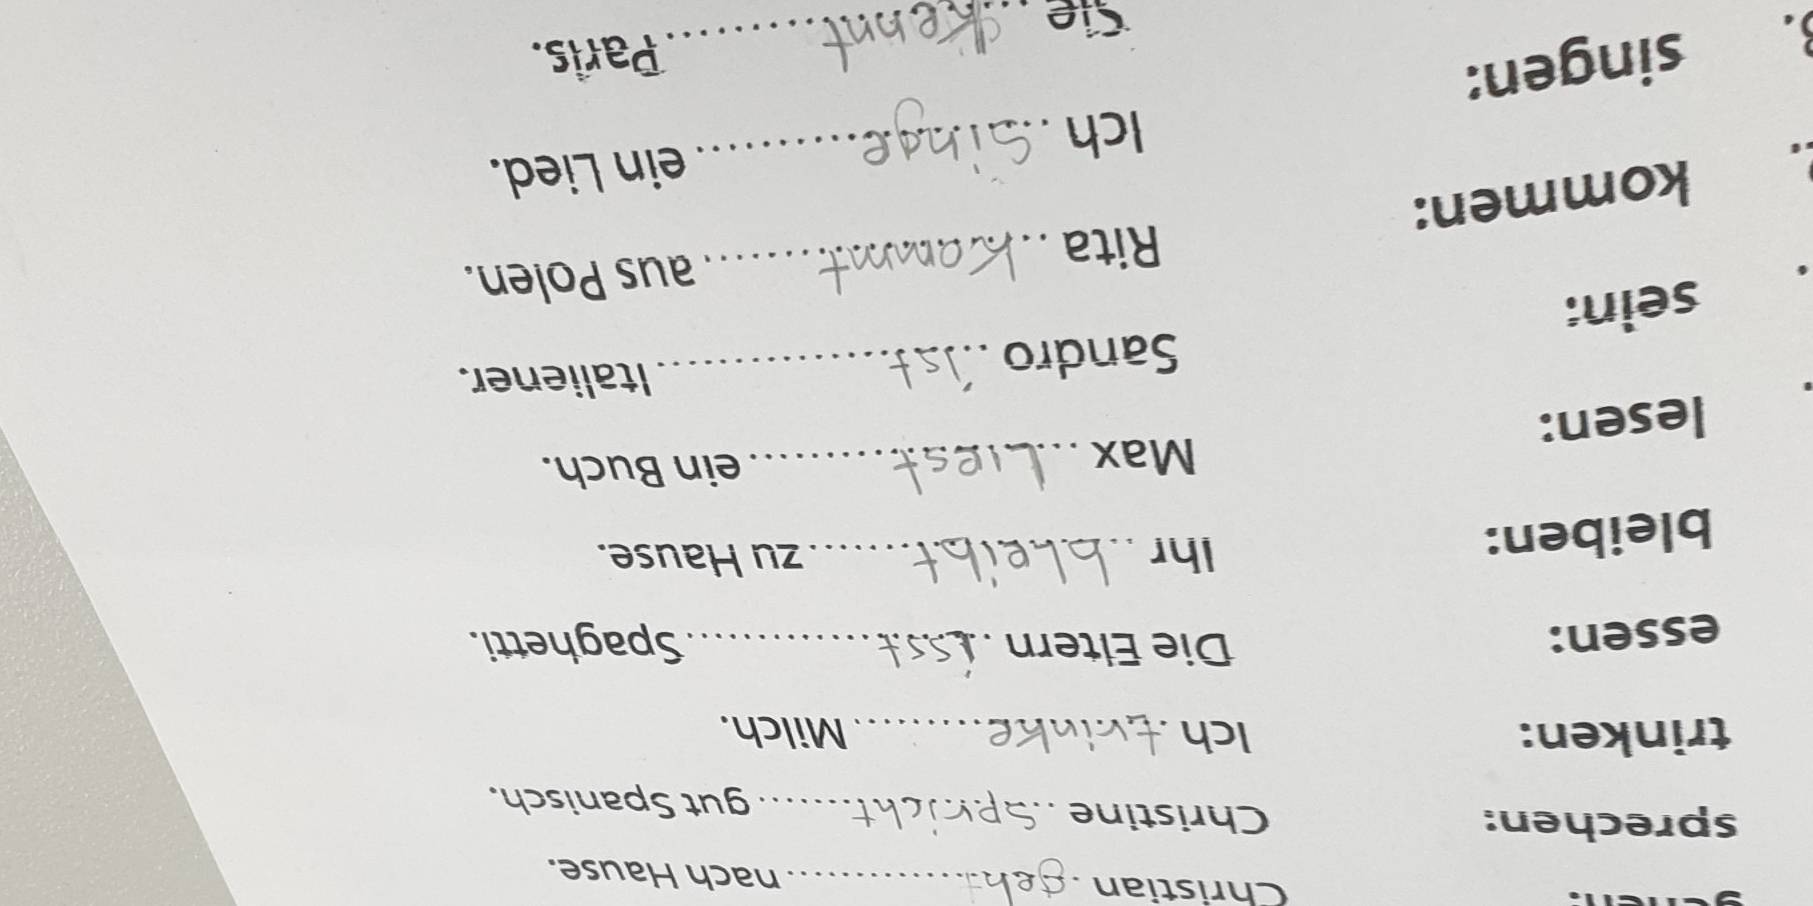 gehen: Christian geht nach Hause.
sprechen: Christine spricht gut Spanisch.
trinken: Ich trinke Milch.
essen: Die Eltern isst Spaghetti.
bleiben: Ihr bleibt zu Hause.
lesen: Max Liest ein Buch.
sein: Sandro ist Italiener.
kommen: Rita kommt aus Polen.
singen: Ich singe ein Lied.
Sie kennt Paris.